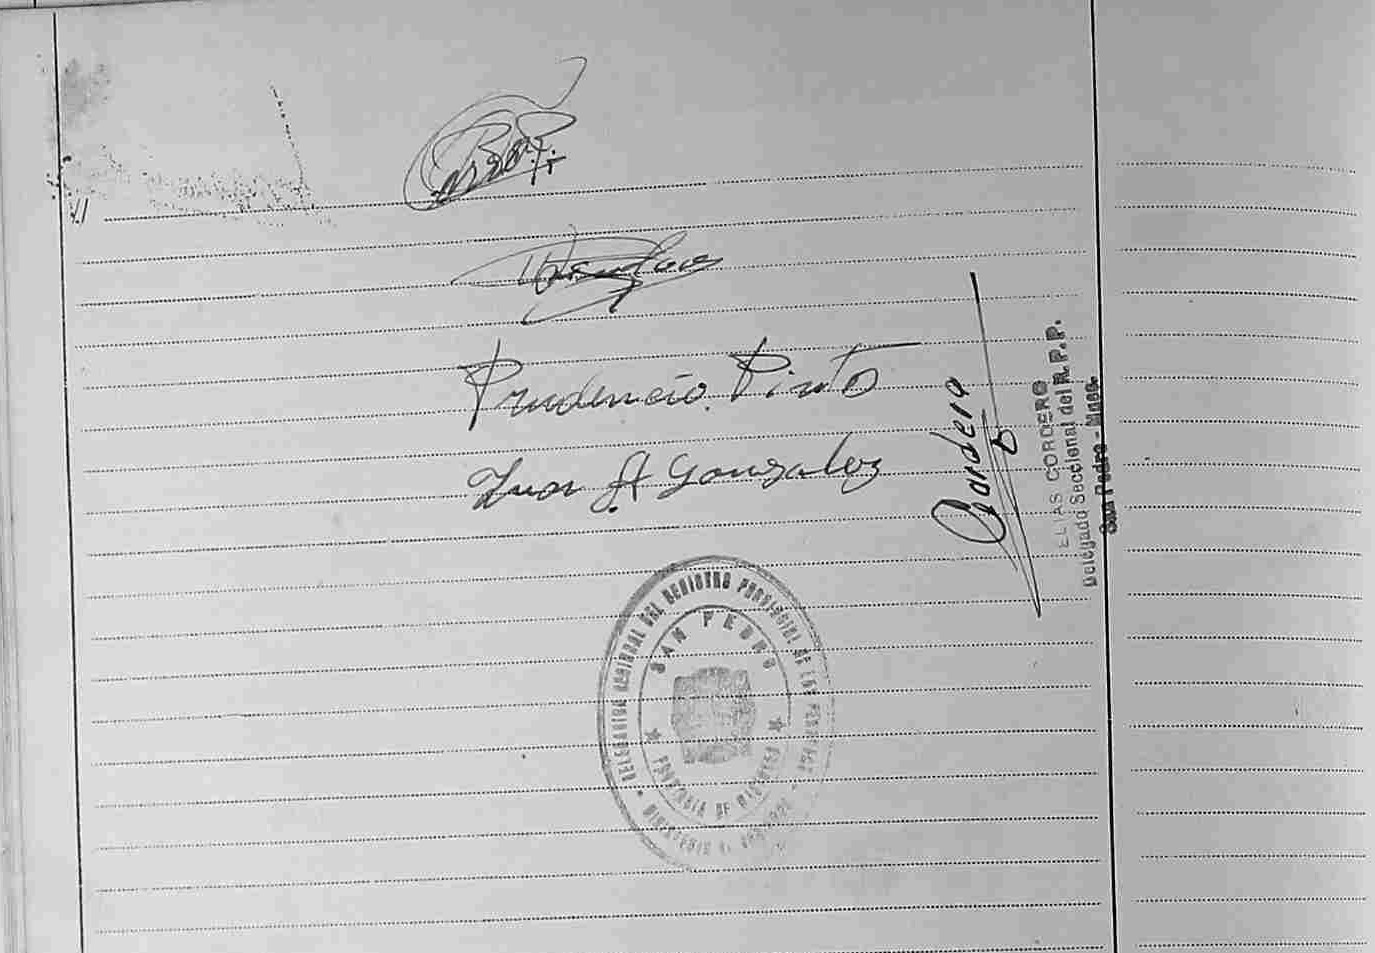 Prudencio Pinto
Juan A Gonzalez
Cordero
ELIAS CORDERO
Delegado Seccional del R.P.P.
San Pedro - Mnes.
DELEGACION REGIONAL DEL REGISTRO PROVINCIAL DE LAS PERSONAS
SAN PEDRO
PROVINCIA DE MISIONES